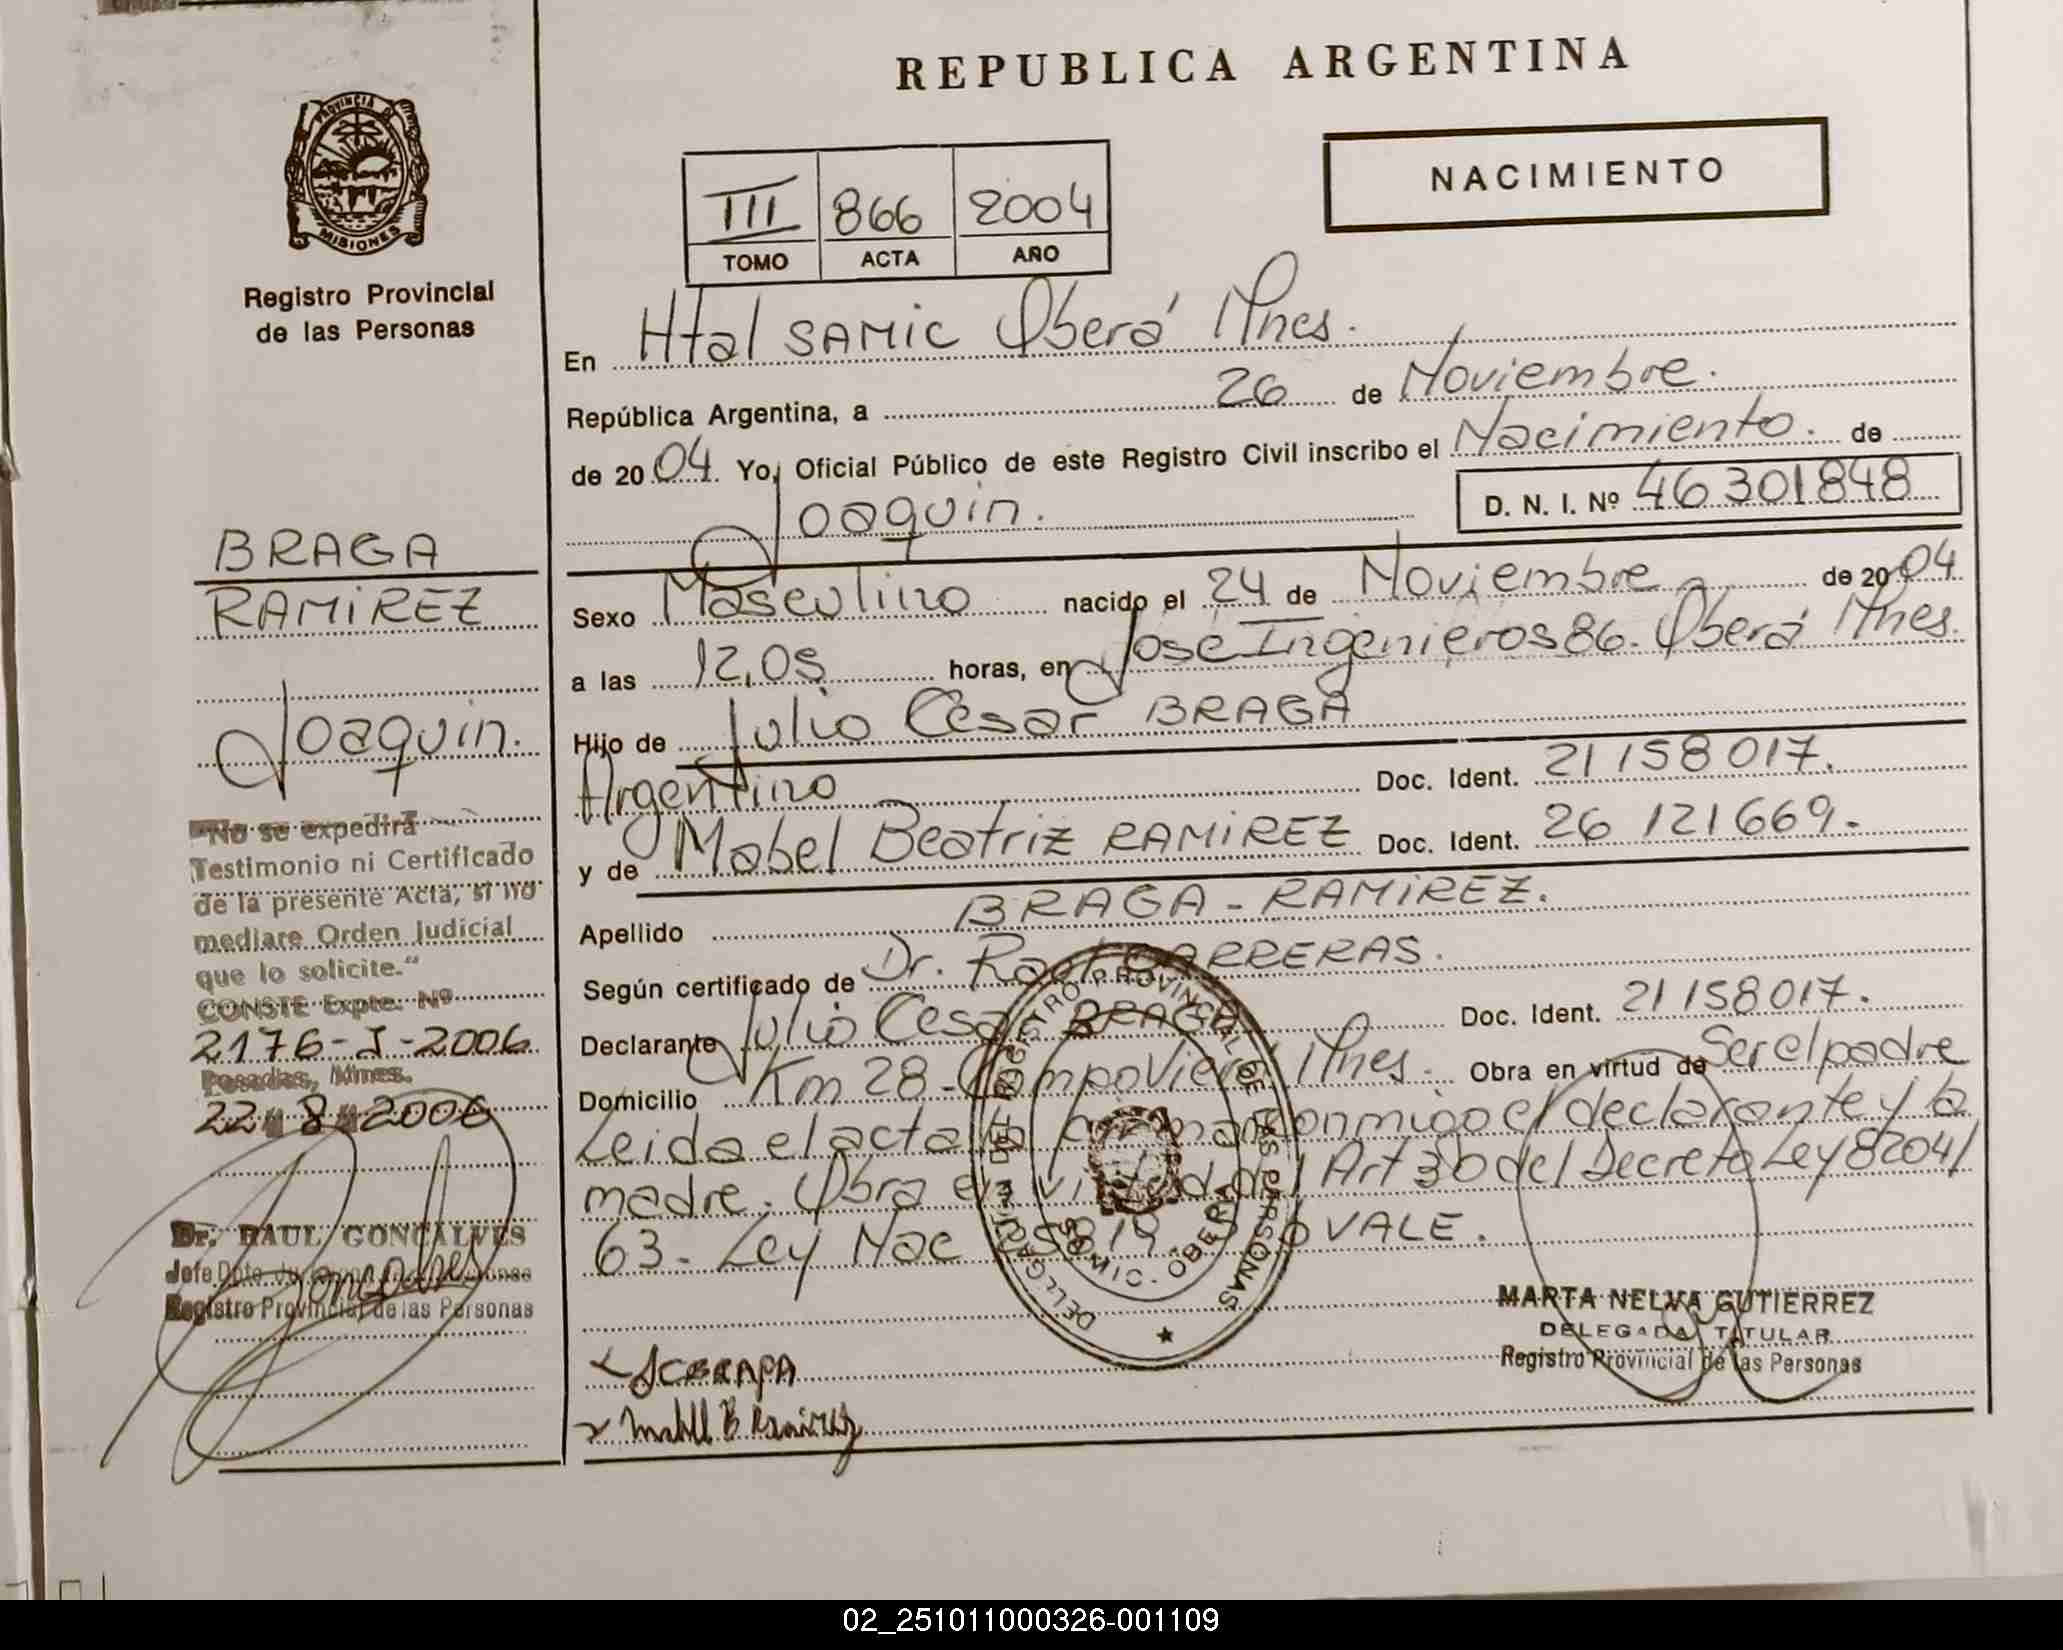 REPUBLICA ARGENTINA
PROVINCIA DE
MISIONES
Registro Provincial
de las Personas
NACIMIENTO
III 866 2004
TOMO ACTA AÑO
En Htal SAMIC Oberá Mnes.
República Argentina, a 26 de Noviembre.
de 2004 Yo, Oficial Público de este Registro Civil inscribo el Nacimiento. de
Joaquin. D. N. I. Nº 46301848
Sexo Masculino nacido el 24 de Noviembre de 2004
a las 12,05 horas, en José Ingenieros 86. Oberá Mnes.
Hijo de Julio Cesar BRAGA
Argentino Doc. Ident. 21 158 017.
y de Mabel Beatriz RAMIREZ Doc. Ident. 26 121 669.
Apellido BRAGA - RAMIREZ.
Según certificado de Dr. Raul CARRERAS.
Declarante Julio Cesar BRAGA Doc. Ident. 21 158 017.
Domicilio Km 28 - Campo Viera Mnes. Obra en virtud de Ser el padre
Leida el acta la firman conmigo el declarante y la
madre. Obra en virtud del Art 30 del Decreto Ley 8204/
63 - Ley Nac VALE.
BRAGA
RAMIREZ
Joaquin.
"No se expedirá
Testimonio ni Certificado
de la presente Acta, si no
mediare Orden Judicial
que lo solicite."
CONSTE Expte. Nº
2176-J-2006
Posadas, Mnes.
22 8 2006
Dr. RAUL GONCALVES
Jefe Dpto.
Registro Provincial de las Personas
DELEGACION DEL REGISTRO PROVINCIAL DE LAS PERSONAS
SAMIC - OBERA
MARTA NELVA GUTIERREZ
DELEGADA TITULAR
Registro Provincial de las Personas
JCBRAGA
Mabel B Ramirez
02_251011000326-001109